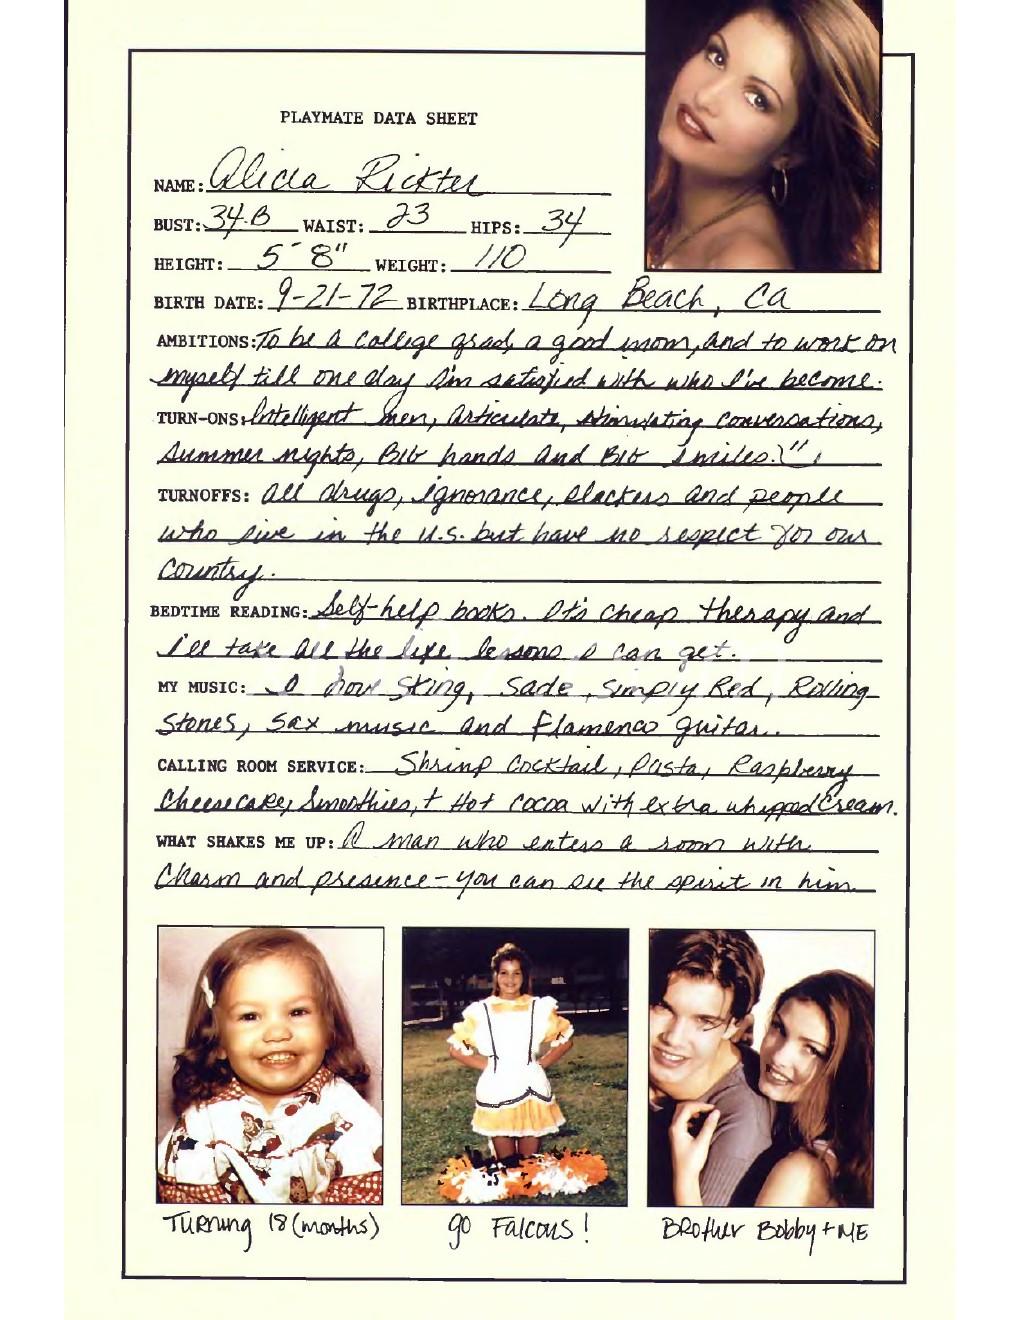 PLAYMATE DATA SHEET
NAME: Alicia Rickter
BUST: 34-B WAIST: 23 HIPS: 34
HEIGHT: 5-8" WEIGHT: 110
BIRTH DATE: 9-21-72 BIRTHPLACE: Long Beach, Ca
AMBITIONS: To be a college grad, a good mom, and to work on
myself till one day I'm satisfied with who I've become.
TURN-ONS: Intelligent men, articulate, stimulating conversations,
summer nights, BIG hands and BIG smiles!
TURNOFFS: All drugs, ignorance, slackers and people
who live in the U.S. but have no respect for our
country.
BEDTIME READING: Self-help books. It's cheap therapy and
I'll take all the life lessons I can get.
MY MUSIC: I love Sting, Sade, Simply Red, Rolling
Stones, Sax music and Flamenco guitar.
CALLING ROOM SERVICE: Shrimp Cocktail, Pasta, Raspberry
Cheesecake, Smoothies, + Hot cocoa with extra whipped cream.
WHAT SHAKES ME UP: A man who enters a room with
charm and presence - you can see the spirit in him.
Turning 18 (months)
go Falcons!
Brother Bobby + ME